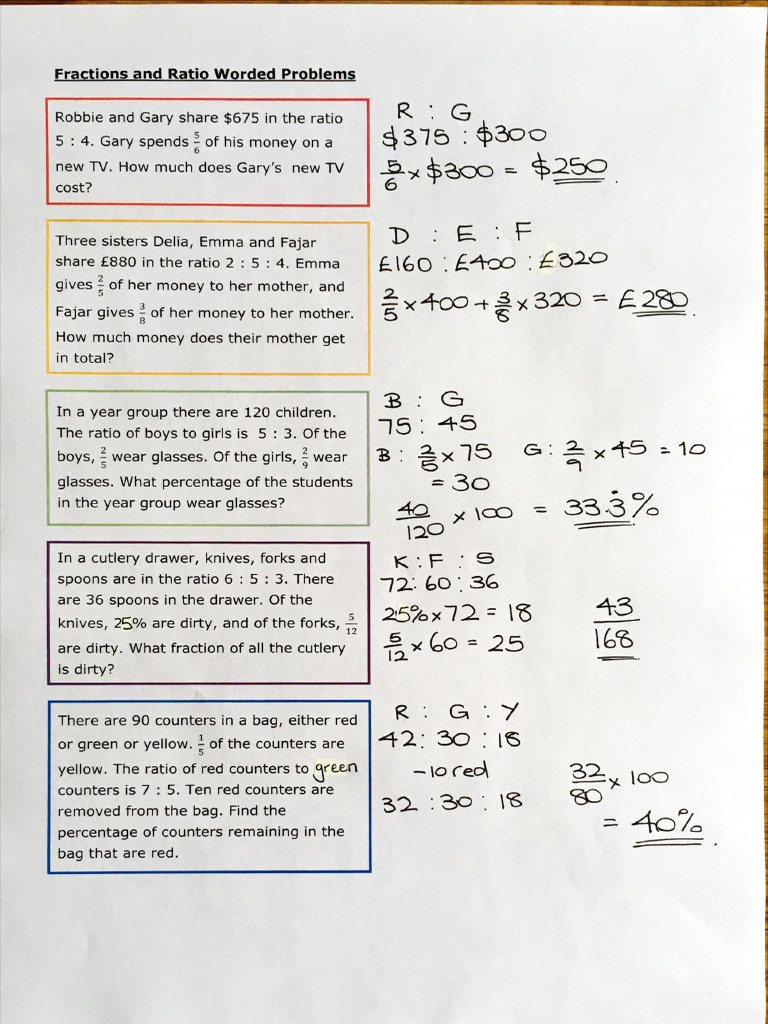 Fractions and Ratio Worded Problems
Robbie and Gary share $675 in the ratio
5 : 4. Gary spends 5/6 of his money on a
new TV. How much does Gary's new TV
cost?
R : G
$375 : $300
5/6 × $300 = $250.
Three sisters Delia, Emma and Fajar
share £880 in the ratio 2 : 5 : 4. Emma
gives 2/5 of her money to her mother, and
Fajar gives 3/8 of her money to her mother.
How much money does their mother get
in total?
D : E : F
£160 : £400 : £320
2/5 × 400 + 3/8 × 320 = £280.
In a year group there are 120 children.
The ratio of boys to girls is 5 : 3. Of the
boys, 2/5 wear glasses. Of the girls, 2/9 wear
glasses. What percentage of the students
in the year group wear glasses?
B : G
75 : 45
B : 2/5 × 75 G : 2/9 × 45 = 10
= 30
40/120 × 100 = 33.3̇%
In a cutlery drawer, knives, forks and
spoons are in the ratio 6 : 5 : 3. There
are 36 spoons in the drawer. Of the
knives, 25% are dirty, and of the forks, 5/12
are dirty. What fraction of all the cutlery
is dirty?
K : F : S
72 : 60 : 36
25% × 72 = 18
5/12 × 60 = 25
43/168
There are 90 counters in a bag, either red
or green or yellow. 1/5 of the counters are
yellow. The ratio of red counters to green
counters is 7 : 5. Ten red counters are
removed from the bag. Find the
percentage of counters remaining in the
bag that are red.
R : G : Y
42 : 30 : 18
-10 red
32 : 30 : 18
32/80 × 100
= 40%.